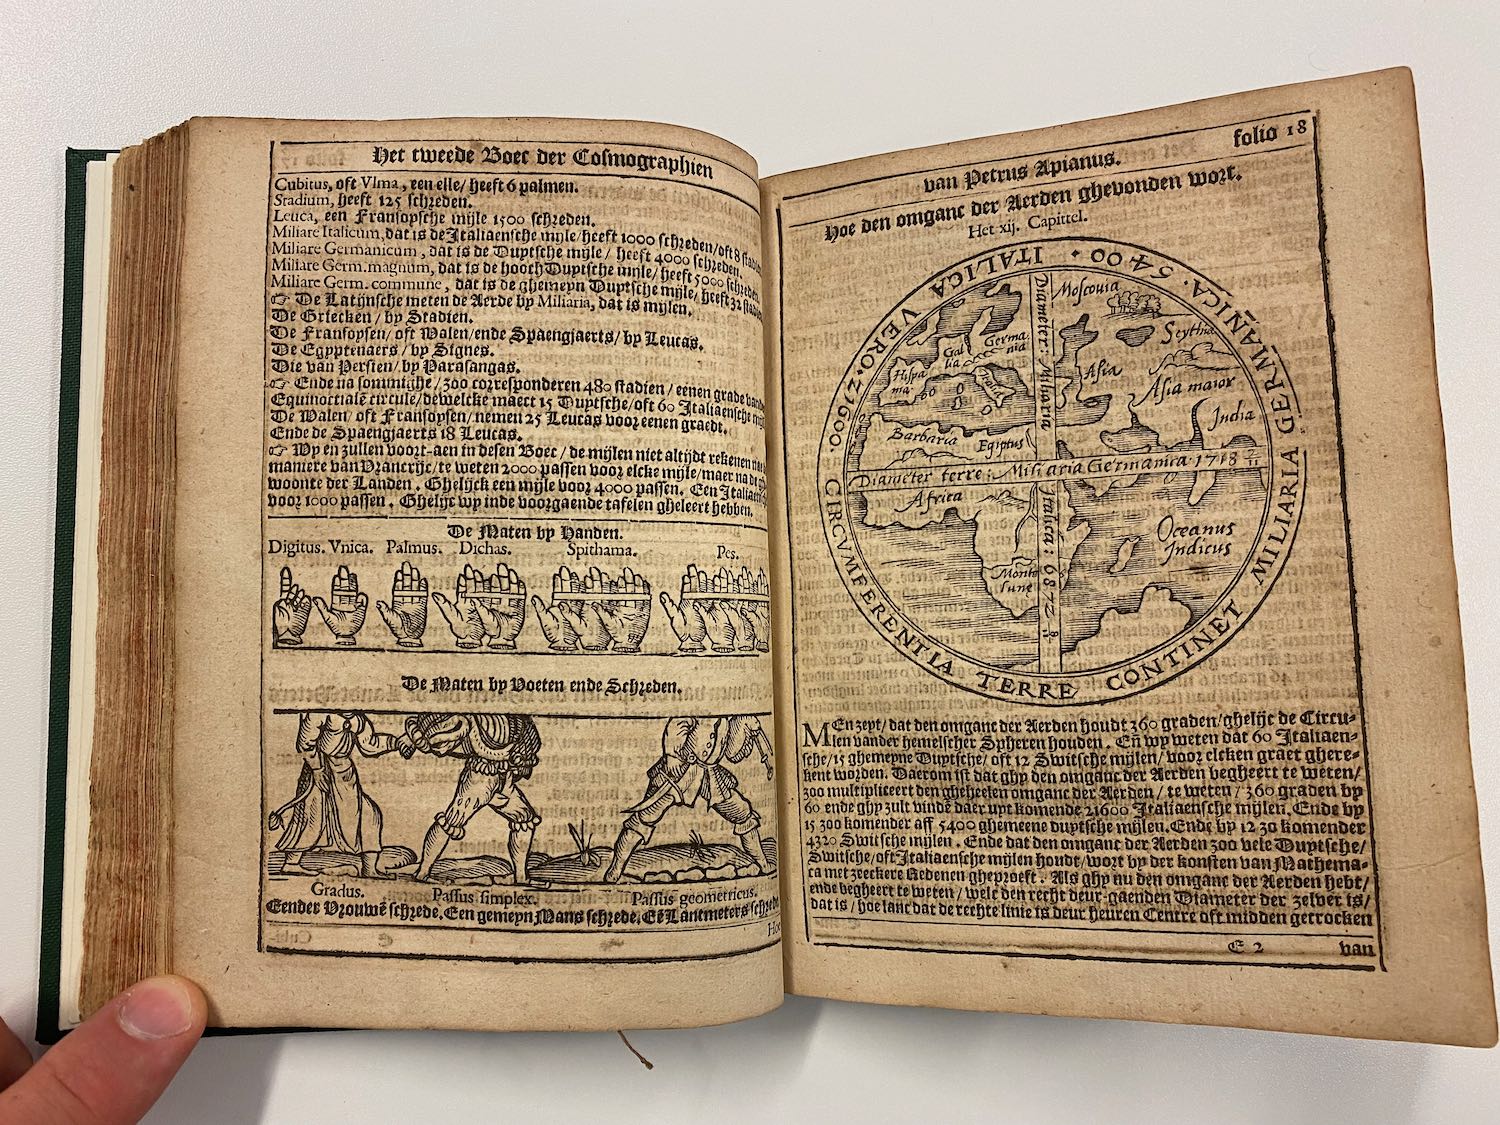 Het tweede Boec der Cosmographien
Cubitus, oft Vlma, een elle/ heeft 6 palmen.
Stadium, heeft 125 schreden.
Leuca, een Fransopsche mijle 1500 schreden.
Miliare Italicum, dat is de Italiaensche mijle/ heeft 1000 schreden/oft 8
Miliare Germanicum, dat is de Duptsche mijle/ heeft 4000 schreden.
Miliare Germ. magnum, dat is de hooch Duptsche mijle/ heeft 5000 schreden.
Miliare Germ. commune, dat is de ghemeyn Duptsche mijle/ heeft 32
☞ De Latijnsche meten de Aerde by Miliaria, dat is mijlen.
De Griecken/ by Stadien.
De Fransopsen/ oft Walen/ende Spaengjaerts/ by Leucas.
De Egyptenaers/ by Signes.
Die van Persien/ by Parasangas.
☞ Ende na sommighe/ 300 corresponderen 480 stadien/ eenen grade
Equinoctialē circule/dewelcke maect 15 Duptsche/oft 60 Italiaensche
De Walen/ oft Fransopsen/nemen 25 Leucas voor eenen graedt.
Ende de Spaengjaerts 18 Leucas.
☞ Wy en zullen voort-aen in desen Boec/ de mijlen niet altijdt rekenen
maniere van Vrancrijc/te weten 2000 passen voor elcke mijle/maer na
woonte der Landen. Ghelijck een mijle voor 4000 passen. Een
voor 1000 passen. Ghelijc wy inde voorgaende tafelen gheleert hebben.
De Maten by Handen.
Digitus. Vnica. Palmus. Dichas. Spithama. Pes.
De Maten by Voeten ende Schreden.
Gradus. Passus simplex. Passus geometricus.
Eender Vrouwē schrede. Een gemeyn Mans schrede. Eē Lantmeters
van Petrus Apianus.
folio 18
Hoe den omganc der Aerden ghevonden wort.
Het xij. Capittel.
CIRCVMFERENTIA TERRE CONTINET MILIARIA GERMANICA. 5400. ITALICA VERO. 21600.
Diameter: Miliaria
Italica: 6872 8/11
Diameter terre: Miliaria Germanica 1718 2/11
Moscouia
Scythia
Germania
Gallia
Hispania
Italia
Asia
Asia maior
India
Barbaria
Egiptus
Africa
Oceanus
Indicus
Monte
Lune
MEn zept/ dat den omganc der Aerden houdt 360 graden/ghelijc de Circu-
len vander hemelscher Spheren houden. Eñ wy weten dat 60 Italiaen-
sche/15 ghemeyne Duptsche/ oft 12 Switsche mijlen/ voor elcken graet ghere-
kent worden. Daerom ist dat ghy den omganc der Aerden begheert te weten/
zoo multipliceert den gheheelen omganc der Aerden/ te weten/ 360 graden by
60 ende ghy zult vindē daer upt komende 21600 Italiaensche mijlen. Ende by
15 zoo komender aff 5400 ghemeene duptsche mijlen. Ende by 12 zo komender
4320 Switsche mijlen. Ende dat den omganc der Aerden zoo vele Duptsche/
Switsche/oft Italiaensche mijlen houdt/ wort by der konsten van Mathema-
ca met zeeckere Redenen gheproeft. Als ghy nu den omganc der Aerden hebt/
ende begheert te weten/ welc den recht deur-gaenden Diameter der zelver is/
dat is/ hoe lanc dat de rechte linie is deur heuren Centre oft midden getrocken
E 2
van